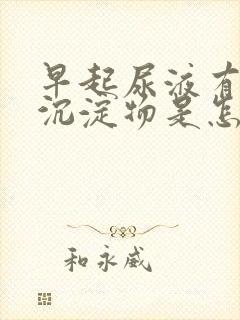 早起尿液有
沉淀物是怎
和永威